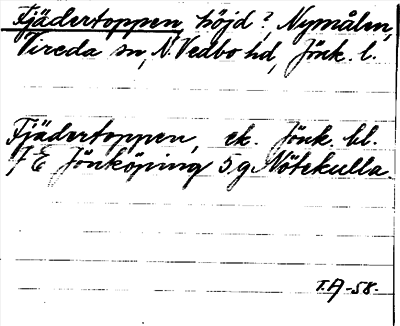 Fjädertoppen, höjd?, Nymålen,
Vireda sn, N. Vedbo hd, Jönk. l.
Fjädertoppen, ek. Jönk. bl.
7 E Jönköping 5 g Nötekulla
T.A -58.